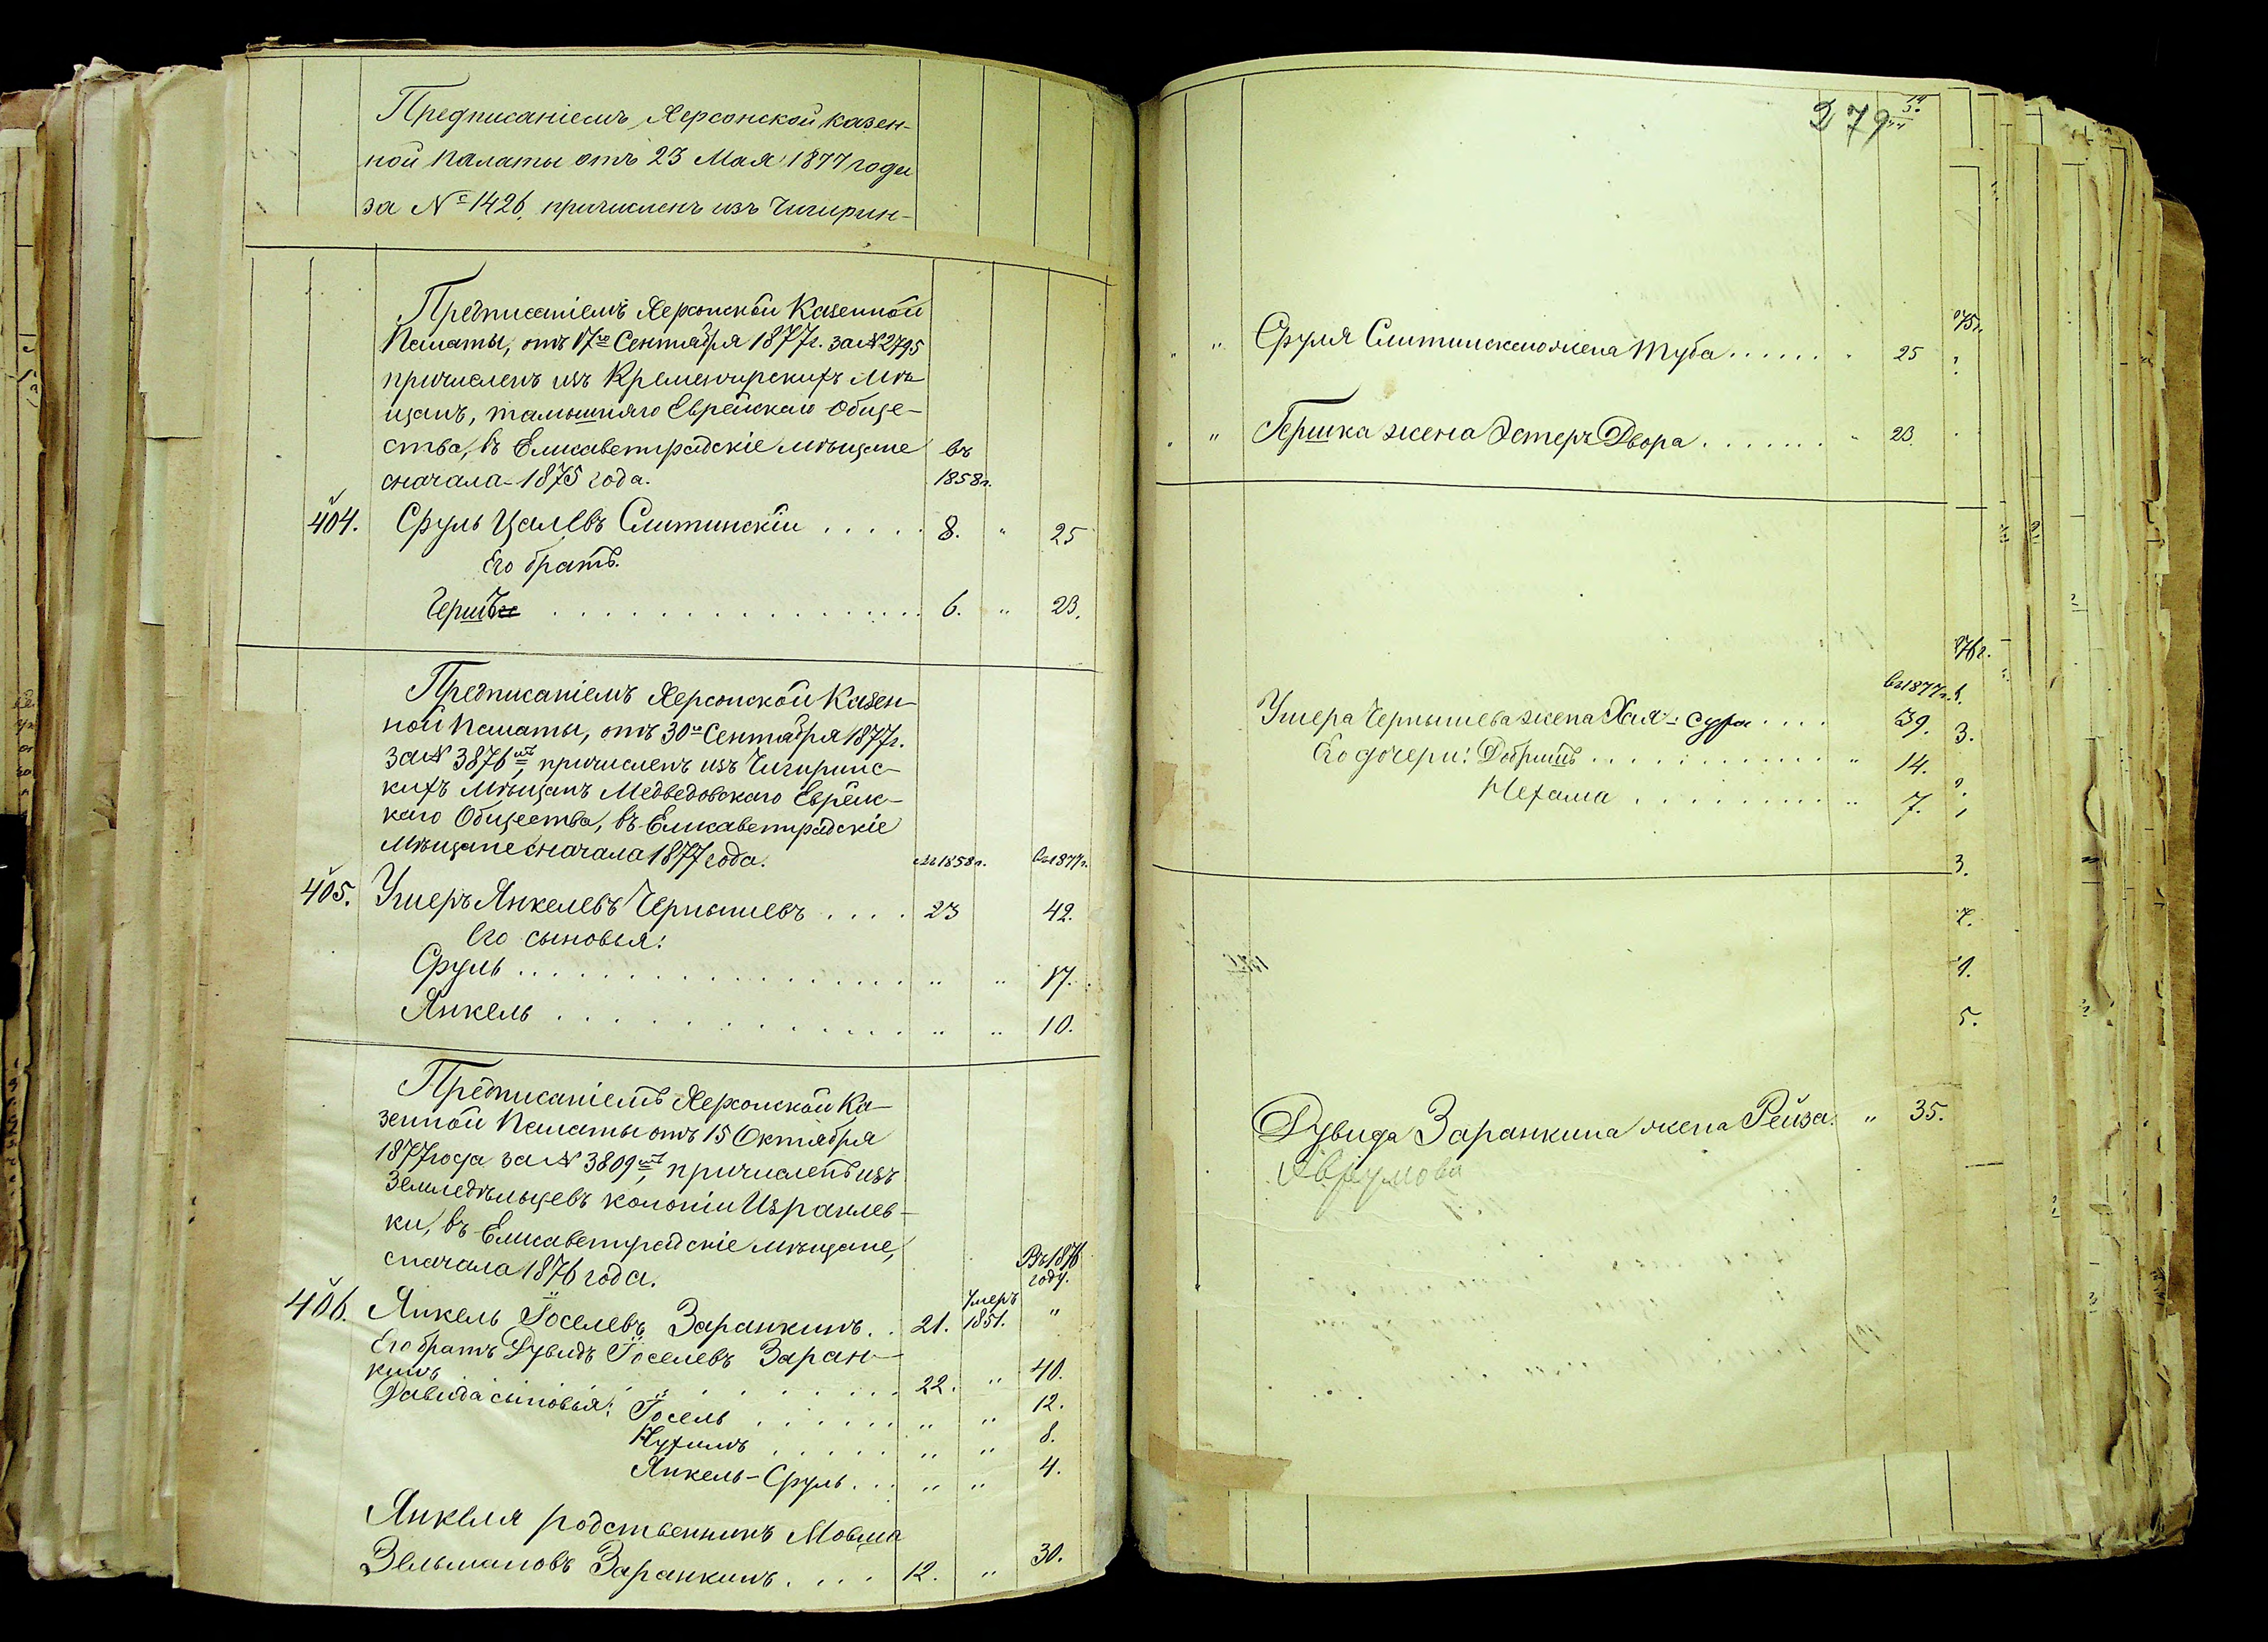 Предписаніемъ Херсонской казен-
ной палаты отъ 23 Мая 1877 года
за № 1426, причисленъ изъ Чигирин-
Предписаніемъ Херсонской Казенной
Палаты, отъ 17го Сентября 1877г. за № 2795
причисленъ изъ Кременчугскихъ Мѣ-
щанъ, тамошняго Еврейскаго Обще-
ства, въ Елисаветградскіе мѣщане
въ
сначала 1875 года.
1858г.
404. Сруль Цалевъ Слитинскій . . . . . 8. " 25
Его братъ.
Гершъ . . . . . . . . . . . . . . . 6. " 23.
Предписаніемъ Херсонской Казен-
ной Палаты, отъ 30го Сентября 1877г.
за № 3876мъ, причисленъ изъ Чигиринс-
кихъ Мѣщанъ Медведовскаго Еврейс-
каго Общества, въ Елисаветградскіе
Мѣщане сначала 1877 года.
въ 1858г. въ 1877г.
405. Умеръ Янкелевъ Чернышевъ . . . . 23 42.
Его сыновья:
Сруль . . . . . . . . . . . . . . . " " 17.
Янкель . . . . . . . . . . . . . . " " 10.
Предписаніемъ Херсонской Ка-
зенной Палаты отъ 15 Октября
1877 года за № 3809мъ, причисленъ изъ
Земледѣльцевъ колоніи Израилев-
ки, въ Елисаветградскіе мѣщане,
сначала 1876 года.
Въ 1876
году.
406. Янкель Іоселевъ Заранкинъ . . 21. Умеръ 1851. "
Его братъ Дувидъ Іоселевъ Заран-
кинъ . . . . . . . . . . 22. " 40.
Давида сыновья: Іосель . . . . . . " " 12.
Нухимъ . . . . . " " 8.
Янкель-Сруль . . . " " 4.
Янкеля родственникъ Мовша
Зельмановъ Заранкинъ . . . . 12. " 30.
279
" " Сруля Слитинскаго жена Туба . . . . . . " 25
" " Гершка жена Эстеръ Двора . . . . . . . " 23.
въ 1877г.
Ушера Чернышева жена Хая-Сура . . . . 39.
Его дочери: Добришъ . . . . . . . . . . . " 14.
Нехама . . . . . . . . . " 7.
Дувида Заранкина жена Рейза. " 35.
Аврумова